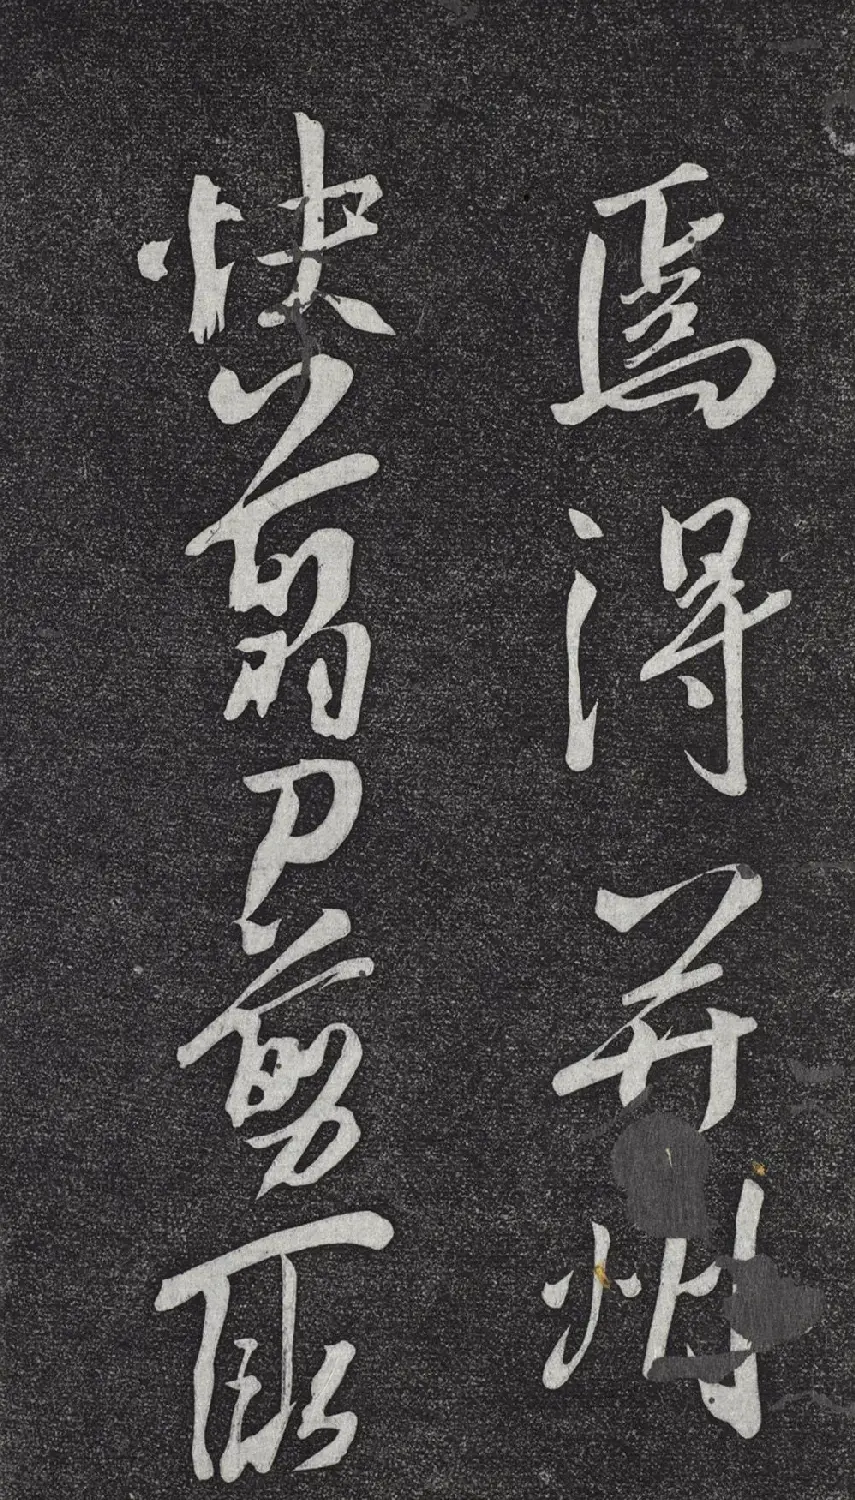 焉得并州
快翦刀剪取